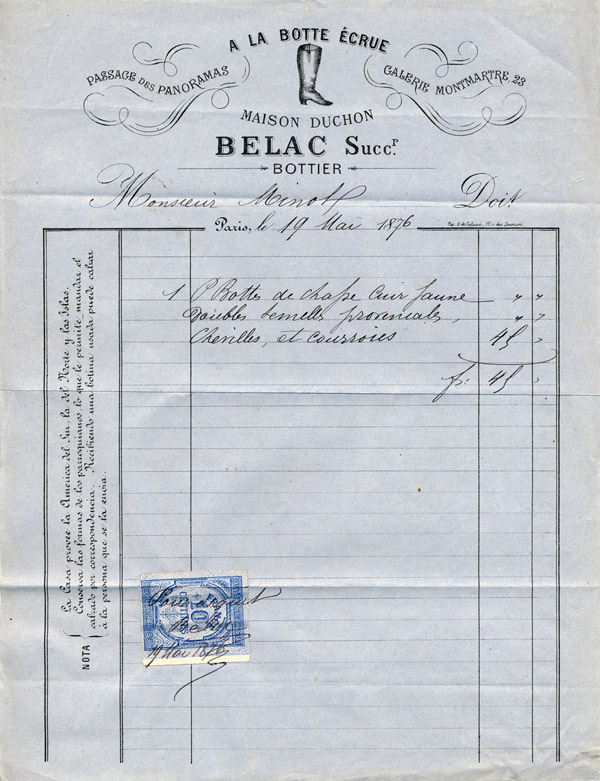 A LA BOTTE ÉCRUE
PASSAGE DES PANORAMAS
GALERIE MONTMARTRE 23
MAISON DUCHON
BELAC Succ.r
BOTTIER
Monsieur Minot Doit
Paris, le 19 Mai 1876
1 P Bottes de chasse Cuir Jaune " "
Doubles semelles provenicales, " "
Chevilles, et courroies 45 "
fr: 45 "
NOTA
La Casa provee la America del Sur, la del Norte y las Islas.
Conserva las formas de los parroquianos, lo que le permite mandar el
calzado por correspondencia. Recibiendo una botina usada puede calzar
á la persona que se la envia.
Pour acquit
Belac
19 Mai 1876